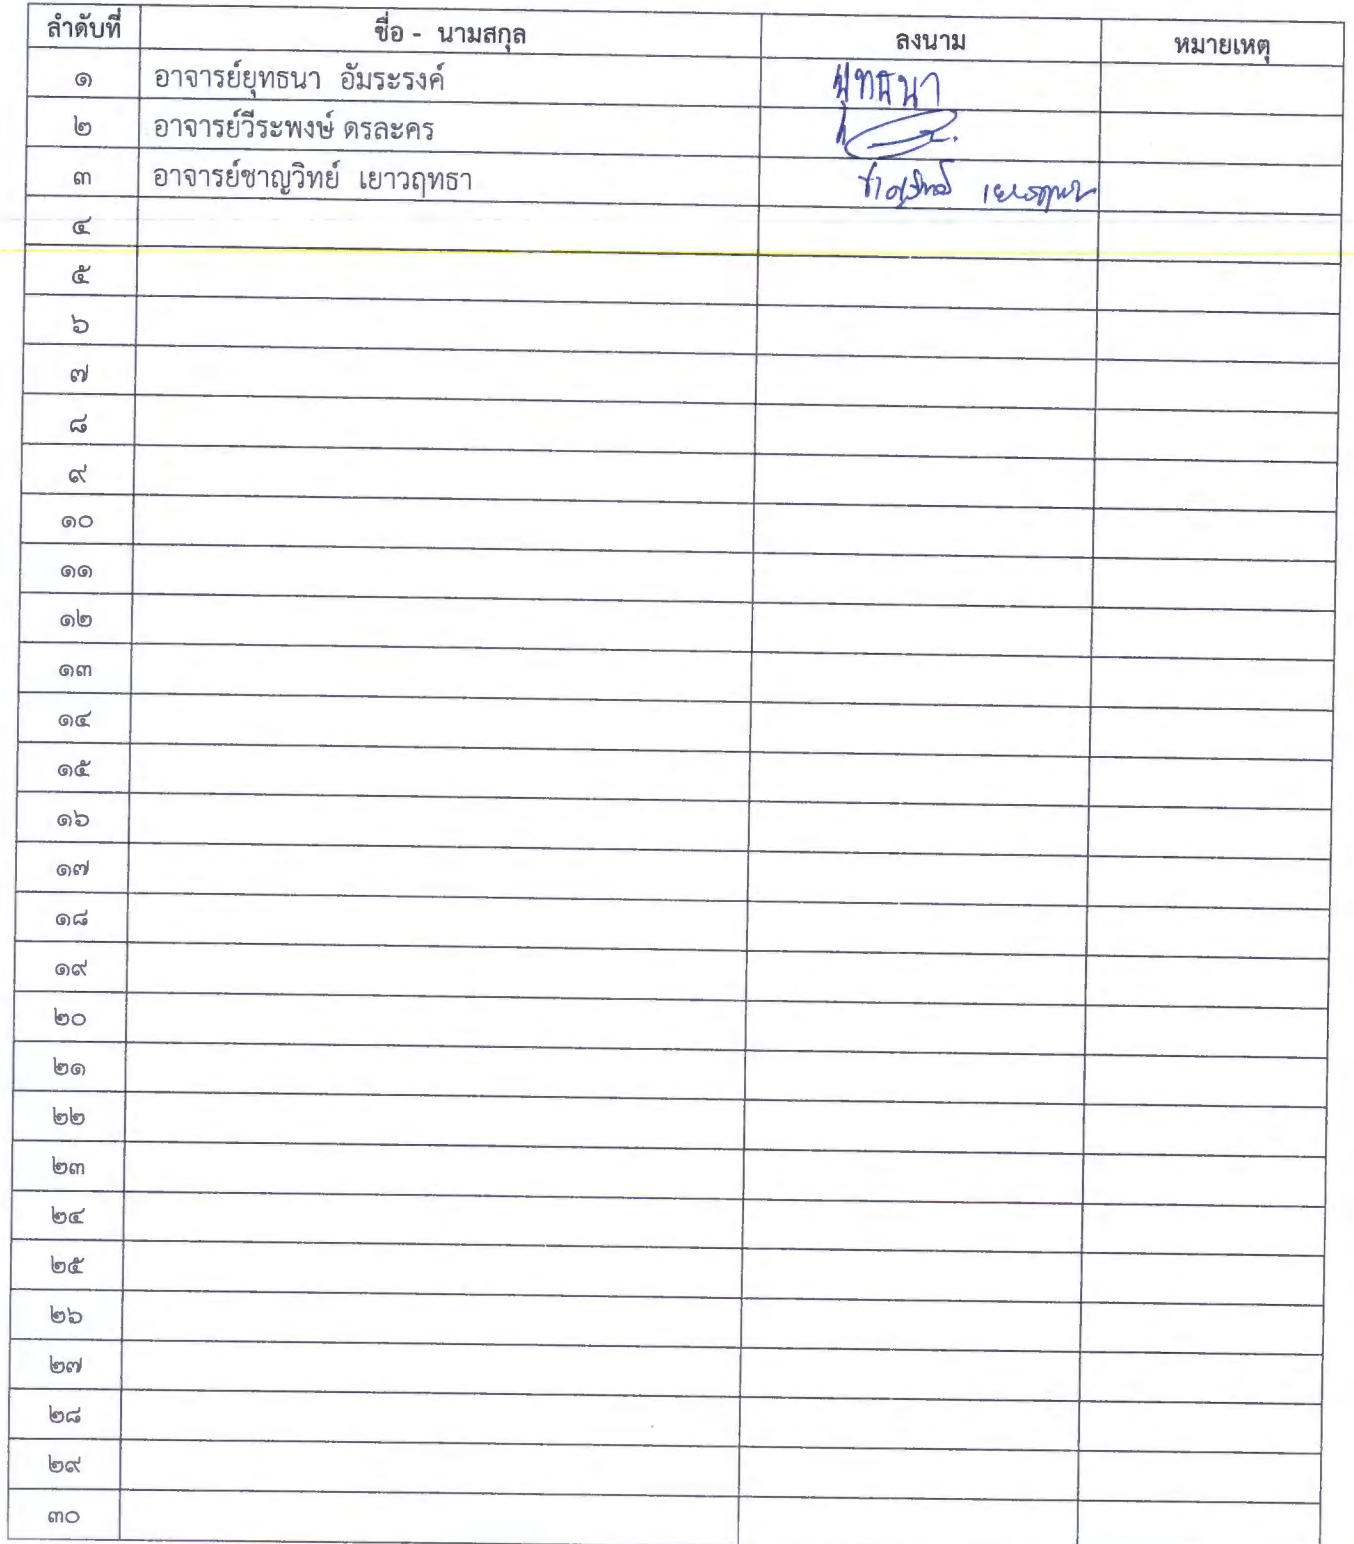 ลำดับที่ ชื่อ - นามสกุล ลงนาม หมายเหตุ
๑ อาจารย์ยุทธนา อัมระรงค์ ยุทธนา
๒ อาจารย์วีระพงษ์ ดรละคร
๓ อาจารย์ชาญวิทย์ เยาวฤทธา ชาญวิทย์ เยาวฤทธา
๔
๕
๖
๗
๘
๙
๑๐
๑๑
๑๒
๑๓
๑๔
๑๕
๑๖
๑๗
๑๘
๑๙
๒๐
๒๑
๒๒
๒๓
๒๔
๒๕
๒๖
๒๗
๒๘
๒๙
๓๐